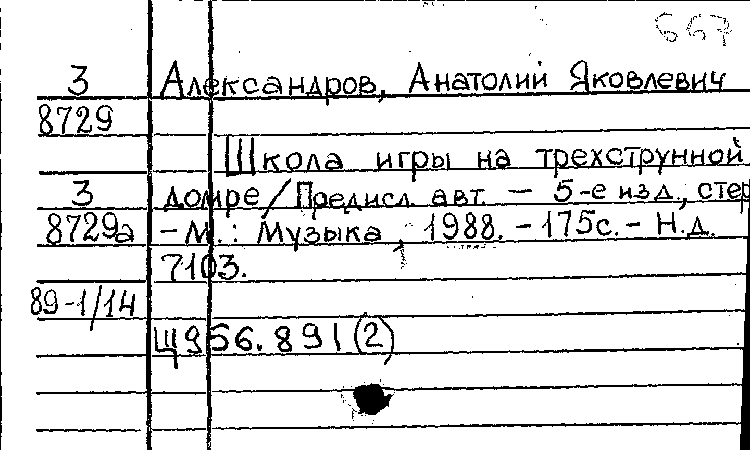 667
З Александров, Анатолий Яковлевич
8729
Школа игры на трехструнной
З домре / Предисл. авт. — 5-е изд., стер
8729а – М.: Музыка, 1988. – 175с. – Н.д.
7103.
89-1/14
Щ956.891(2)